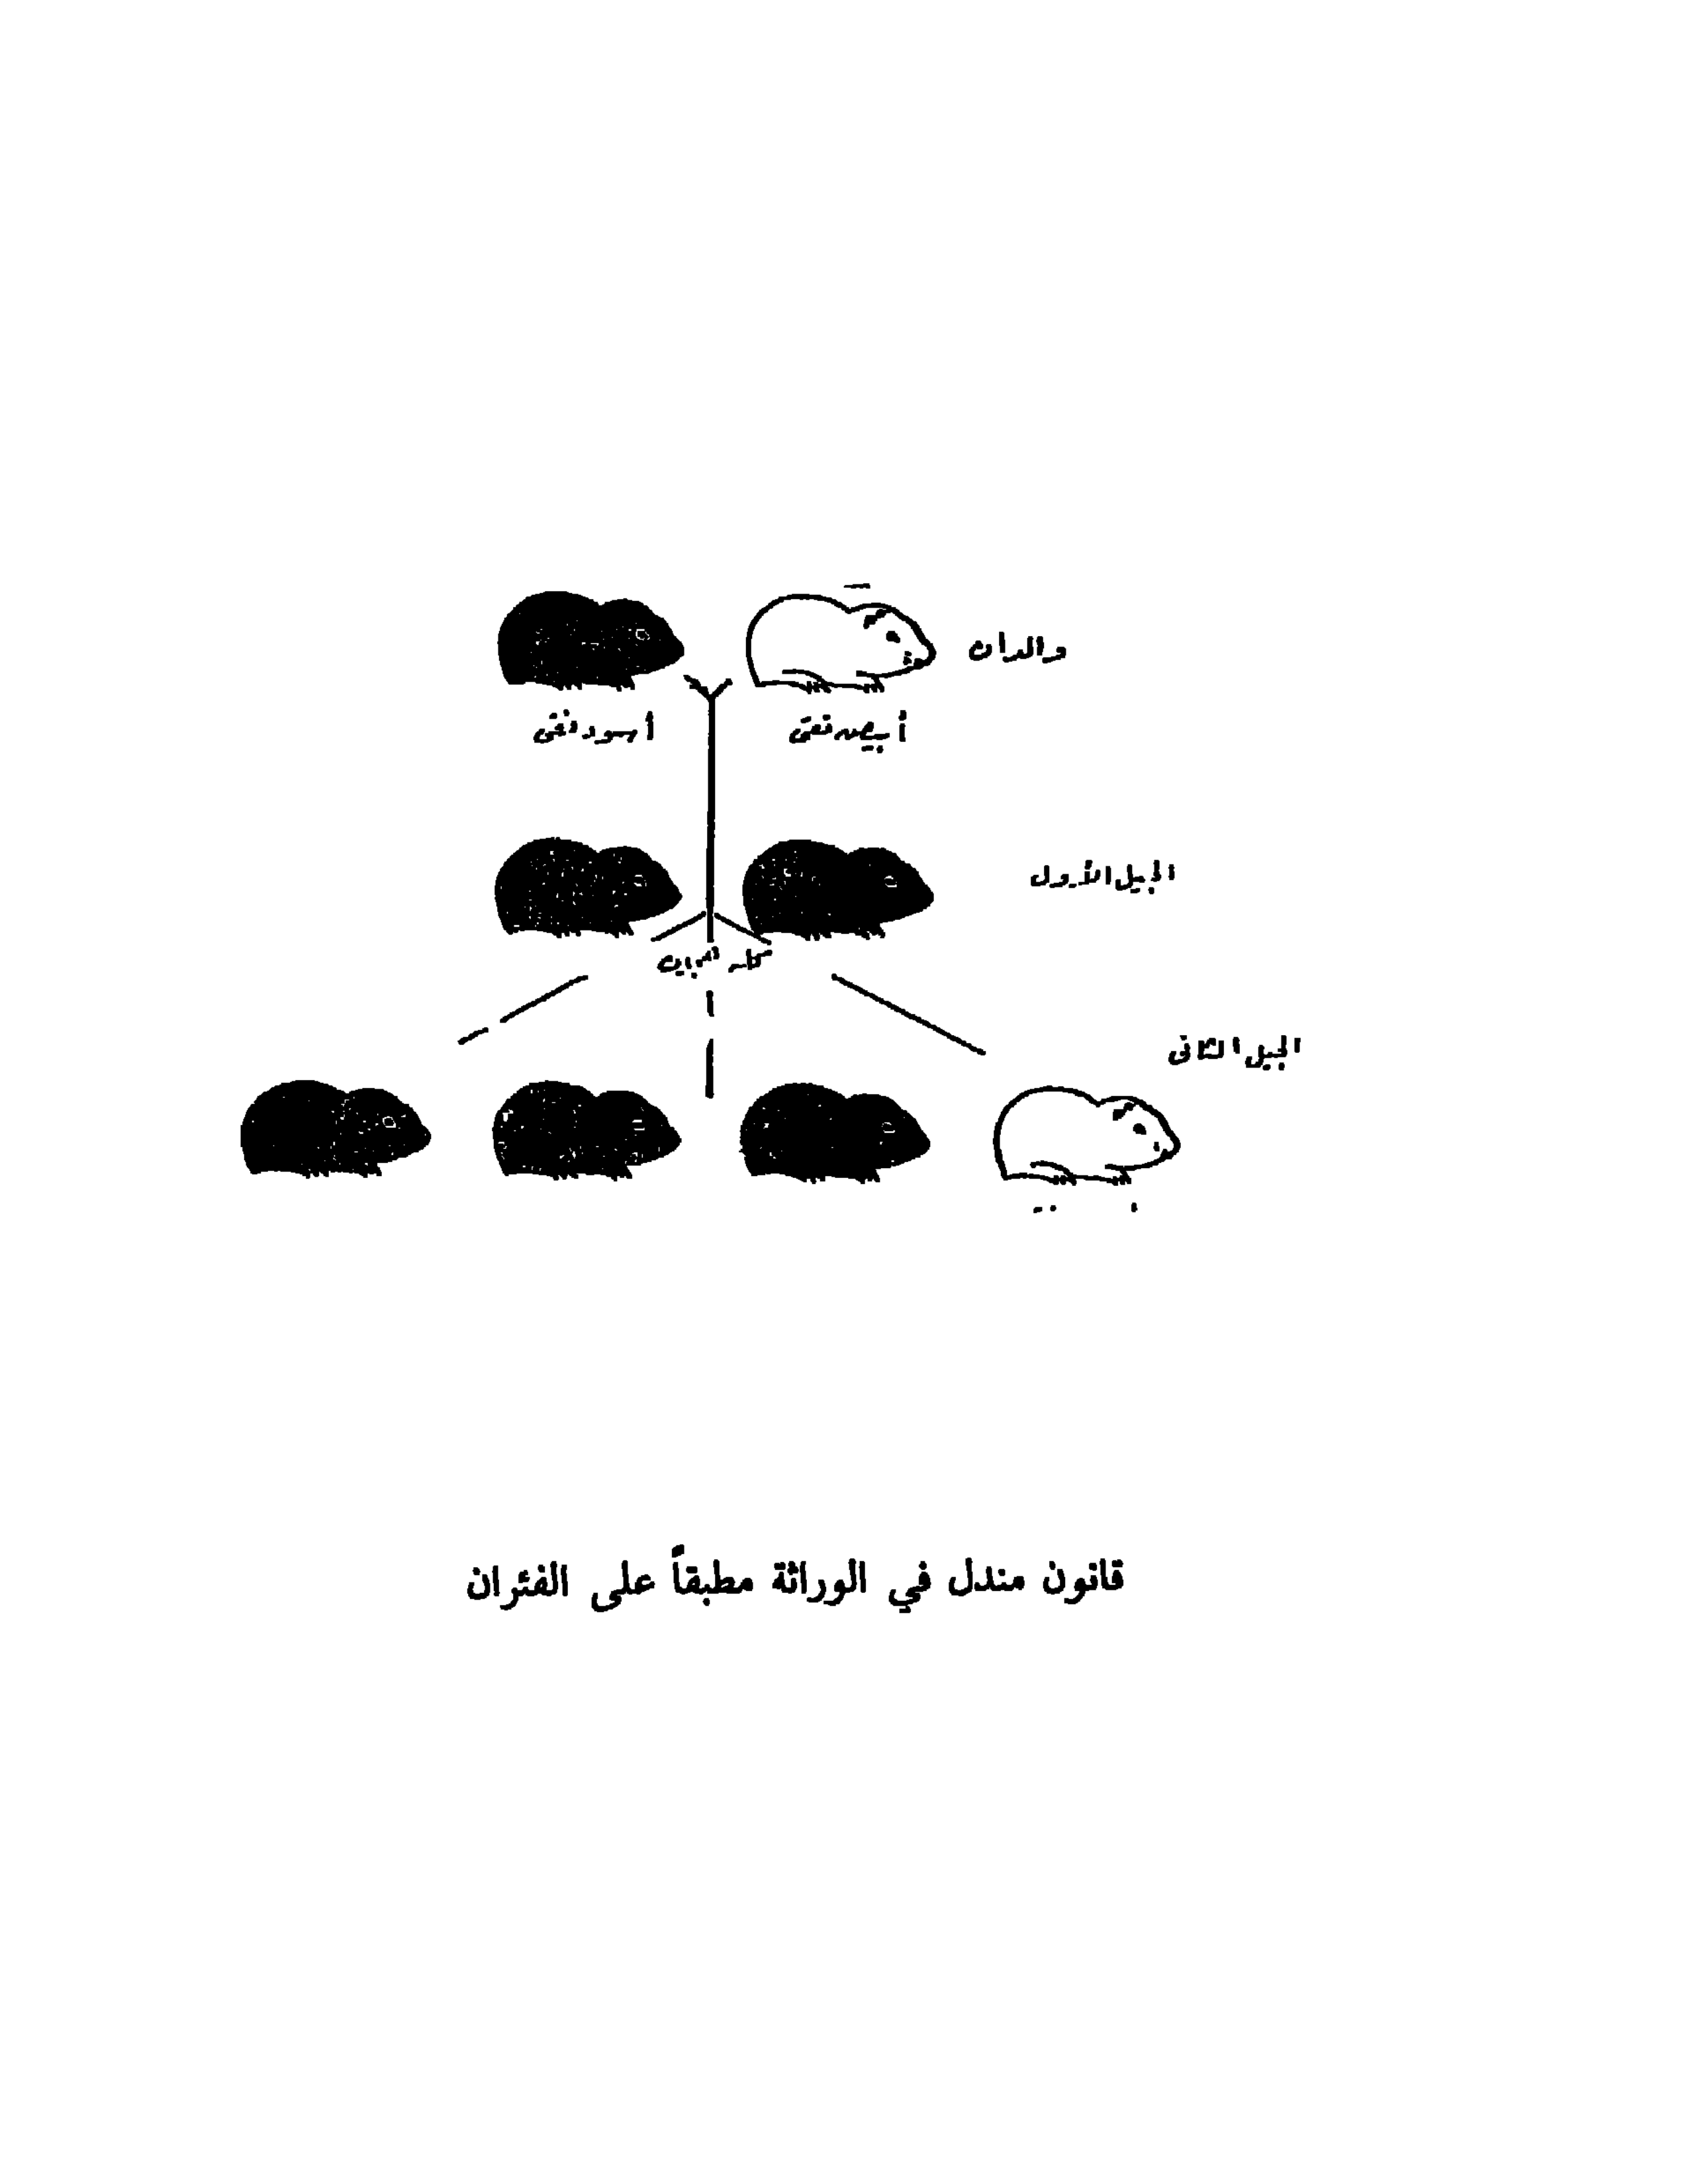 والدان
أبيض نقى
أسود نقى
الجيل الأول
الجيل الثانى
قانون مندل في الوراثة مطبقاً على الفئران